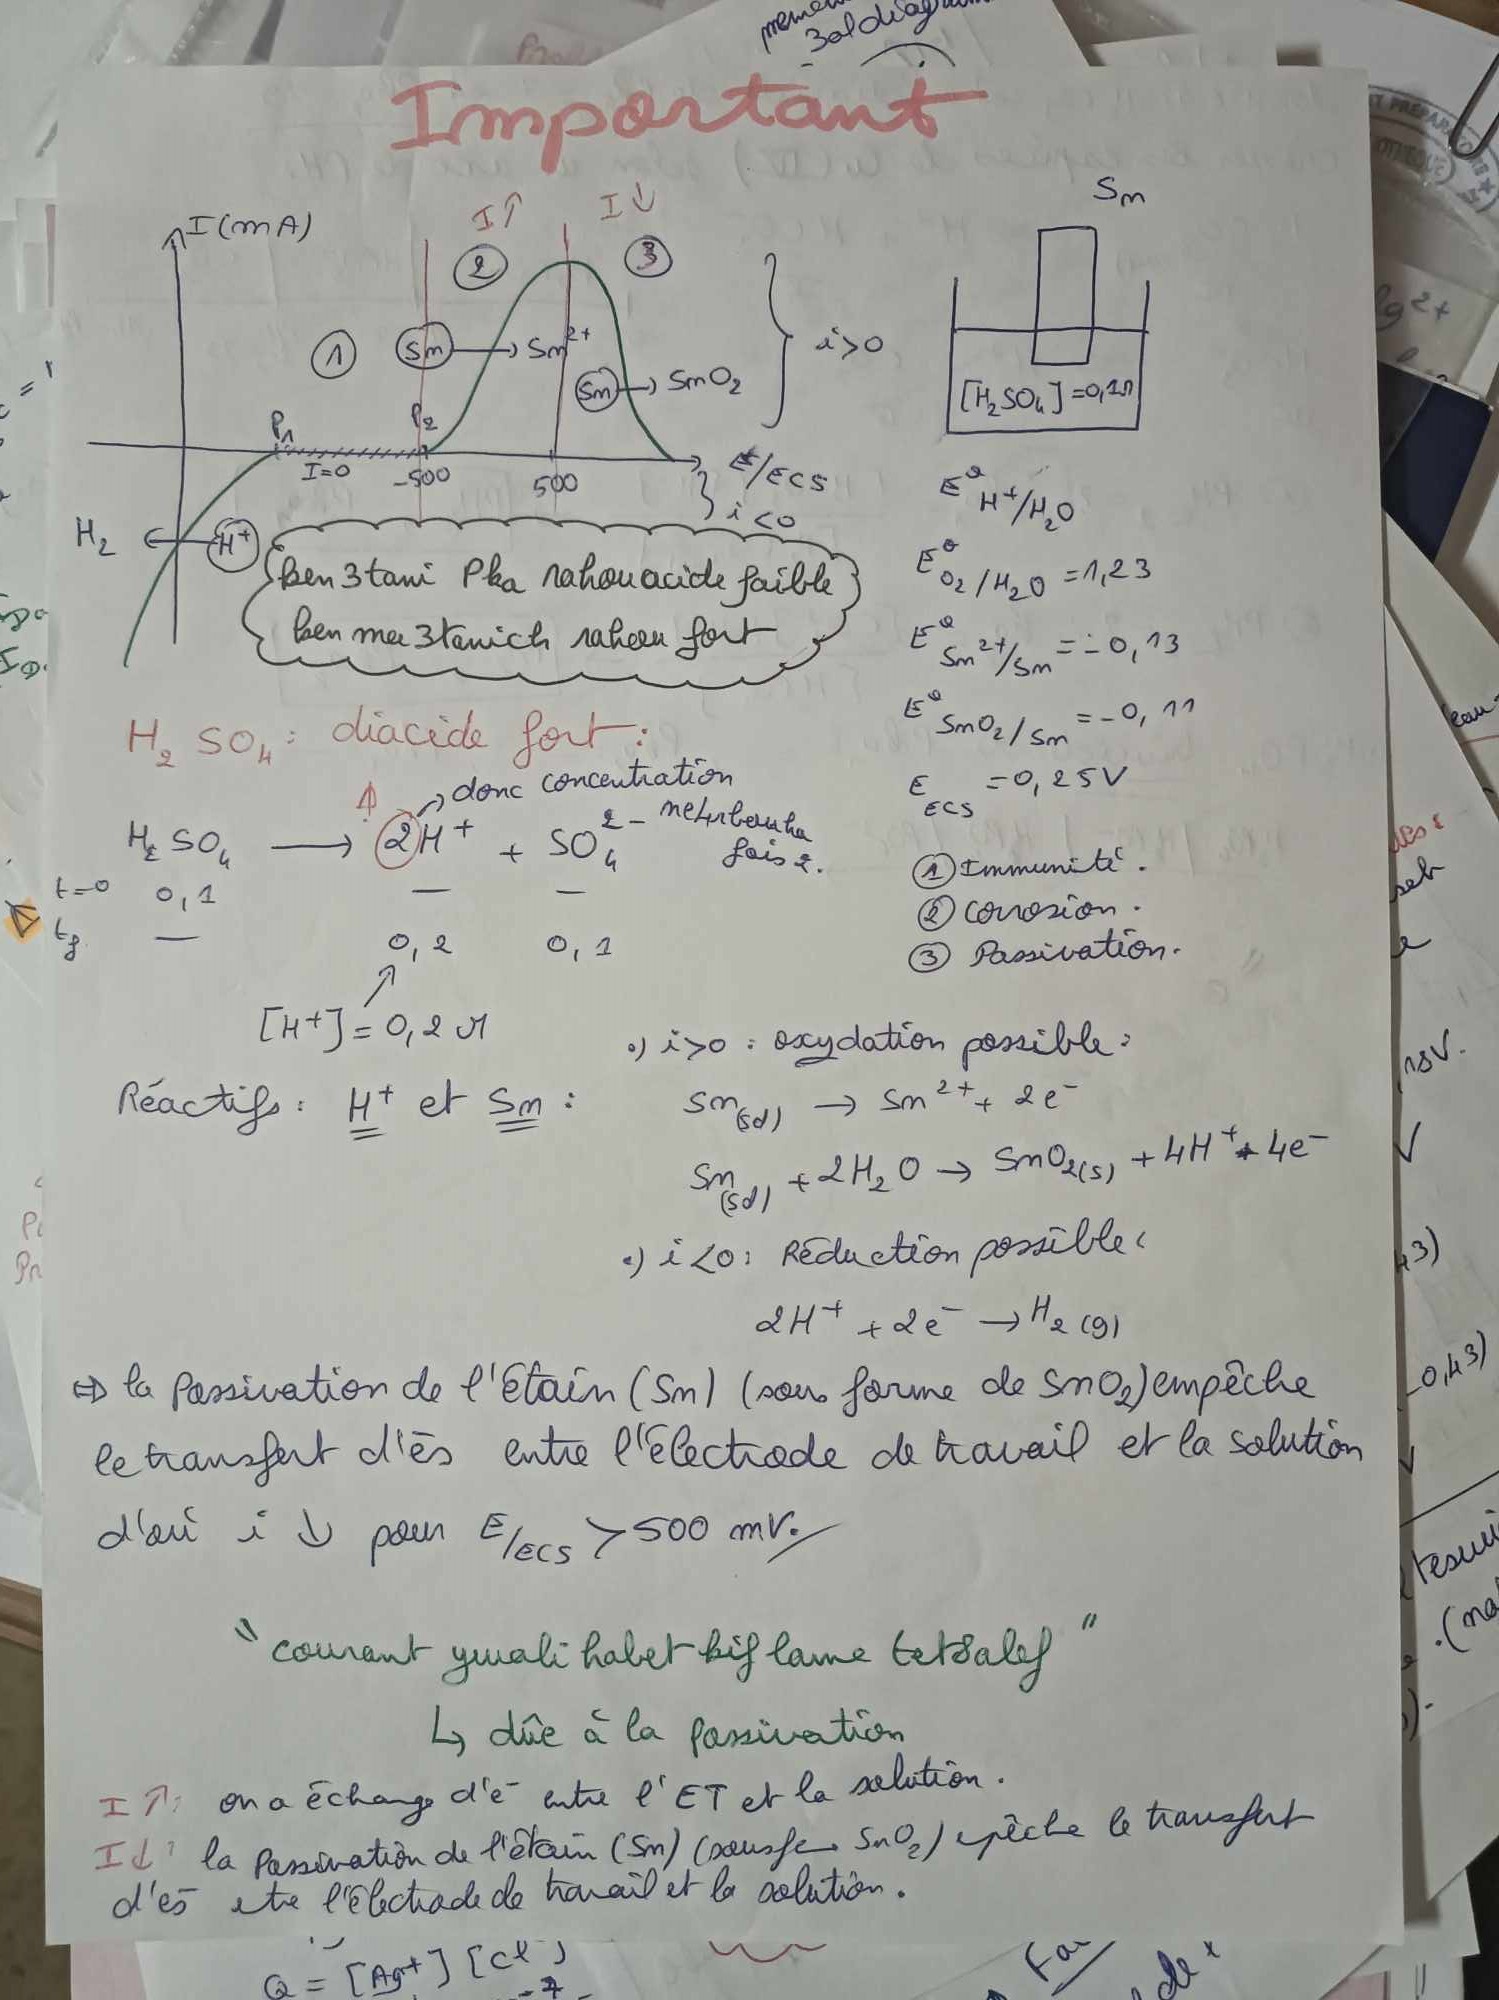 Important
I(mA)
I↑
I↓
①
②
③
Sn → Sn²⁺
Sn → SnO₂
i>0
P₁
P₂
I=0
-500
500
E/ECS
i<0
H₂ ← H⁺
Sn
[H₂SO₄]=0,1M
ken 3tani Pka rahou acide faible
ken ma 3tanich rahou fort
E° H⁺/H₂O
E° O₂/H₂O =1,23
E° Sn²⁺/Sn =-0,13
E° SnO₂/Sn =-0,11
E ECS =0,25V
① Immunité.
② Corrosion.
③ Passivation.
H₂SO₄: diacide fort:
donc concentration
fois 2.
H₂SO₄ → 2H⁺ + SO₄²⁻
t=0 0,1 — —
tf — 0,2 0,1
[H⁺]=0,2M
Réactifs: H⁺ et Sn:
•) i>0: oxydation possible:
Sn(sd) → Sn²⁺ + 2e⁻
Sn(sd) + 2H₂O → SnO₂(s) + 4H⁺ + 4e⁻
•) i<0: Réduction possible:
2H⁺ + 2e⁻ → H₂(g)
⇒ la Passivation de l'étain (Sn) (sous forme de SnO₂) empêche
le transfert d'és entre l'électrode de travail et la solution
d'où i ↓ pour E/ECS > 500 mV.
"courant ywali habet kif lame tet8alef"
↳ dûe à la passivation
I↑: on a échange d'e⁻ entre l'ET et la solution.
I↓: la Passivation de l'étain (Sn) SnO₂) epêche le transfert
d'és etre l'électrode de travail et la solution.
Q = [Ag⁺] [Cl⁻]